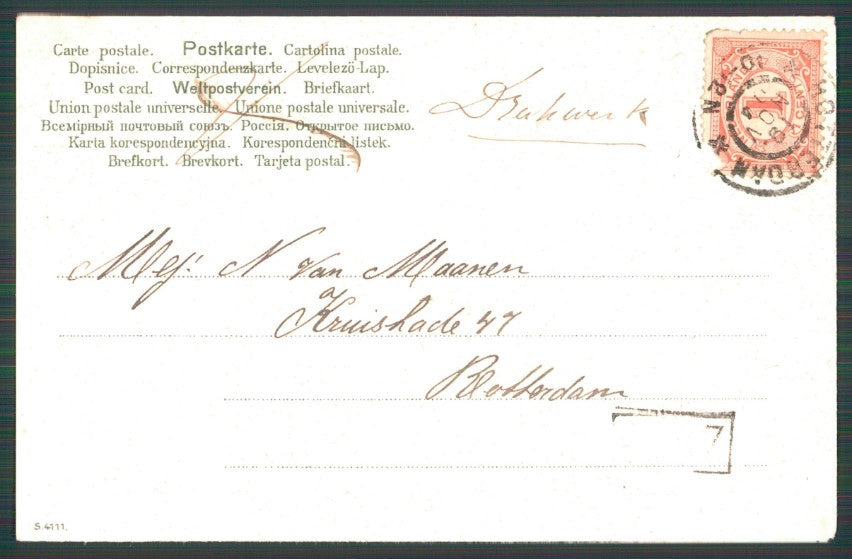 Carte postale. Postkarte. Cartolina postale.
Dopisnice. Correspondenzkarte. Levelező-Lap.
Post card. Weltpostverein. Briefkaart.
Union postale universelle. Unione postale universale.
Всемірный почтовый союзъ. Россія. Открытое письмо.
Karta korespondencyjna. Korespondenčni listek.
Brefkort. Brevkort. Tarjeta postal.
Drukwerk
1
Mej: N Van Maanen
Kruiskade 47
Rotterdam
7
S.4111.